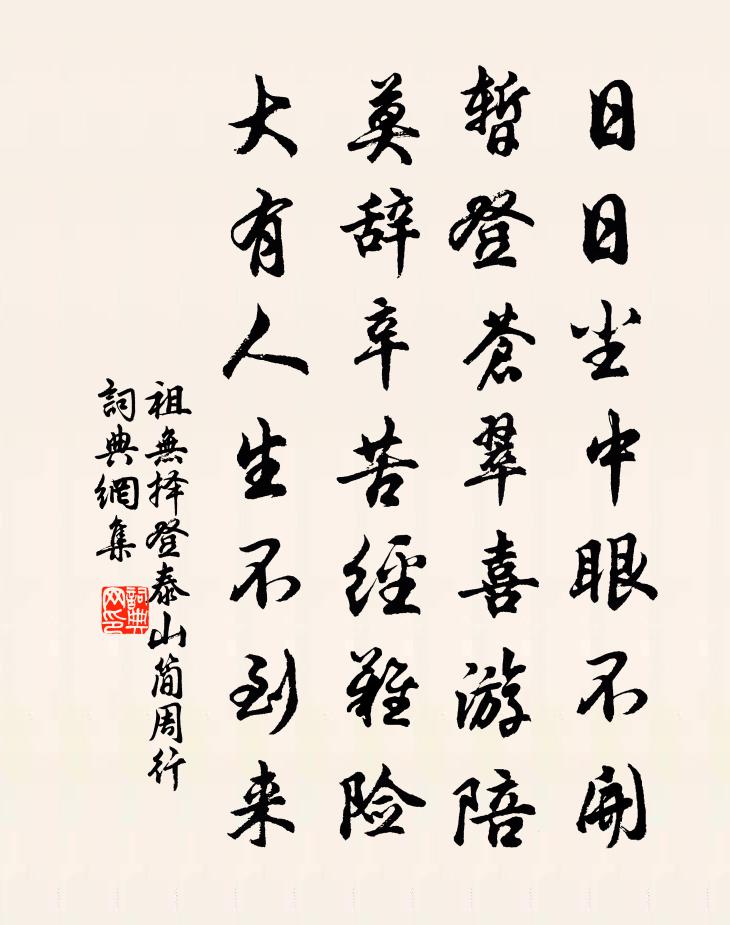 日日尘中眼不開
暫登蒼翠喜游陪
莫辞辛苦經難险
大有人生不到来
祖無择登泰山简周行
詞典網集
詞典网印